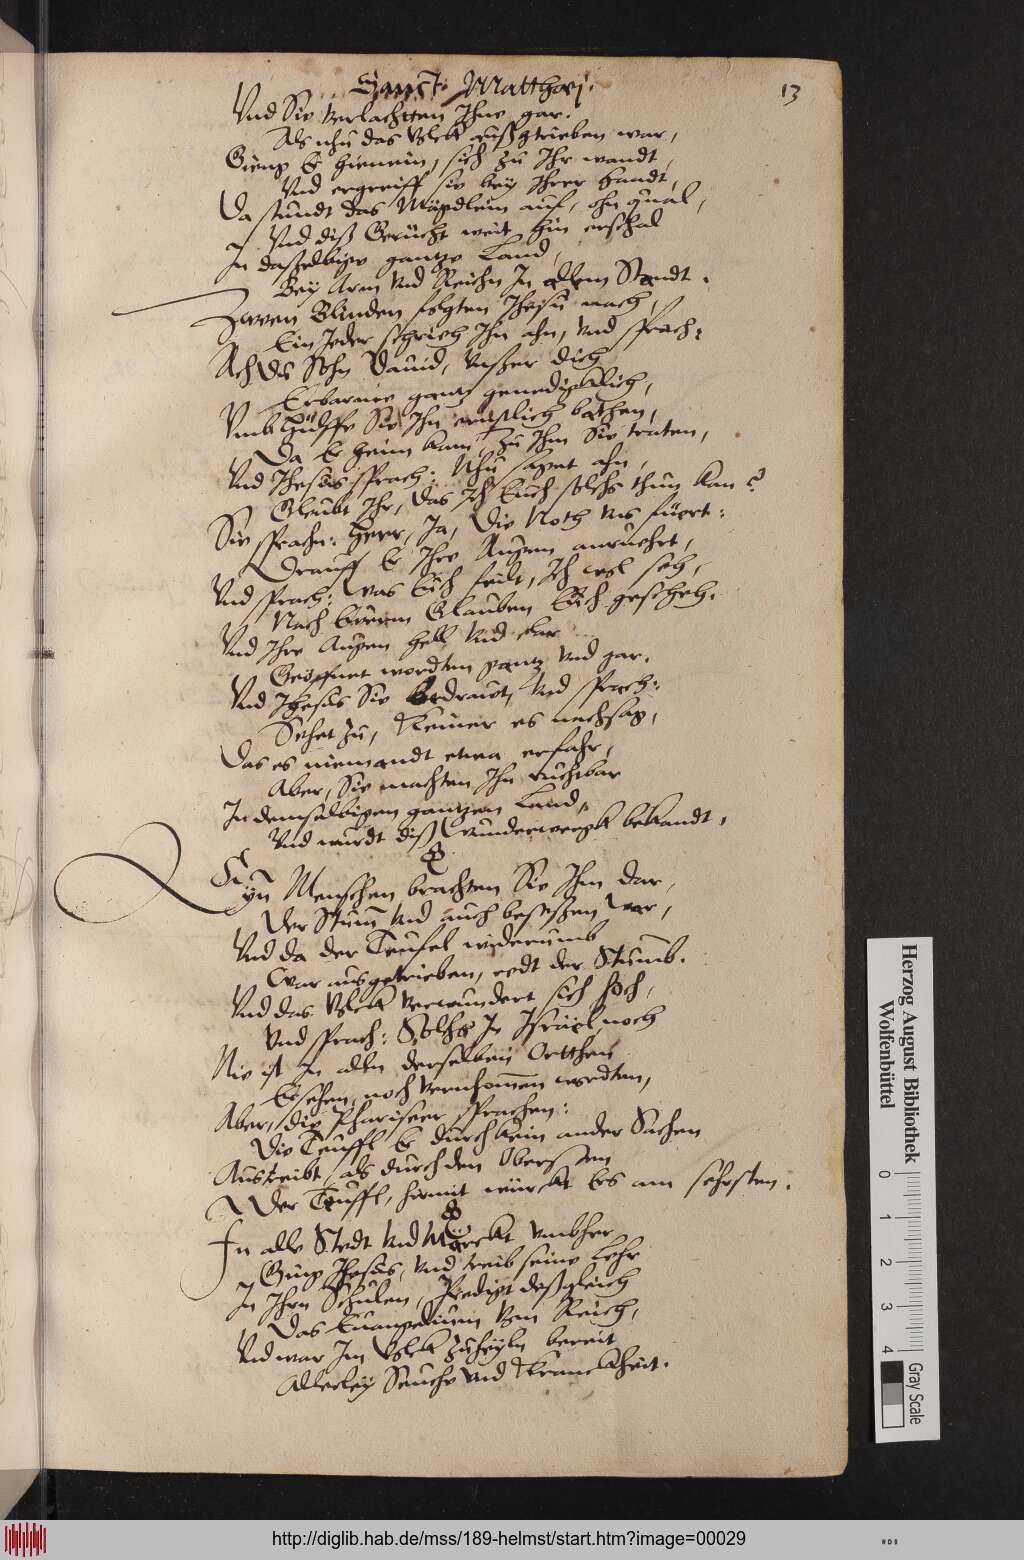 Sanct. Matthæj.
13
Vnd Sie verlachtten Ihne gar.
Als nhu das Volck außgetrieben war,
Gieng Er hienein, sich zu Ihr wandt,
Vnd ergreiff sie bey Ihrer handt,
Da stundt das Mägdlein auf, ohn qual,
Vnd diß Gerücht weit hin erschal
In daßelbige gantze Land,
Bey Arm vnd Reichn In allem Standt.
Zween Blinden folgten Jhesu nach,
Ein Jeder schrieh Ihn ahn, vnd sprach:
Ach du Sohn Dauid, Vnser dich
Erbarme gantz genedigklich,
Vmb Hülffe Sie Ihn ernstlich bathen,
Da Er heim kam, zu Ihm Sie traten,
Vnd Jhesus sprach: Nhu saget ahn,
Gleubt Ihr, das Ich Euch solchs thun kan?
Sie sprachn: Herr, Ja, Die Noth vns füert:
Drauff Er Ihre Augen anruehrt,
Vnd sprach: Was Euch feilt, Ich wol seh,
Nach Eurem Glauben Euch gescheh.
Vnd Ihre Augen hell vnd klar
Geöffnet wordten gantz vnd gar.
Vnd Jhesus Sie bedrauet, vnd sprach:
Sehet zu, Keiner es nachsag,
Das es niemandt etwa erfahr,
Aber, Sie machten Ihn ruchtbar
In demselbigen gantzen Land,
Vnd wurdt diß Wunderwergk bekandt,
Eyn Menschen brachten Sie Ihm dar,
Der Stum vnd auch beseßen war,
Vnd da der Teufel widerumb
War ausgetrieben, redt der Stumb.
Vnd das Volck verwundert sich hoch,
Vnd sprach: Solchs In Israel noch
Nie ist In alln derselben Ortthen
Ersehen, noch vernhommen wordten,
Aber, die Phariseer sprachen:
Die Teuffl Er durch kein ander Sachen
Austreibt, als durch den Obersten
Der Teuffl, hirmit würckt Ers am sehrsten.
In alle Stedt vnd Märckt vmbher
Ging Jhesus, vnd treib seine Lehr
In Ihrn Schulen, Predigt deßgleich
Das Euangelium vom Reich,
Vnd war Im Volck zuheyln bereit
Allerley Seuche vnd Kranckheit.
Herzog August Bibliothek
Wolfenbüttel
0 1 2 3 4
Gray Scale
http://diglib.hab.de/mss/189-helmst/start.htm?image=00029